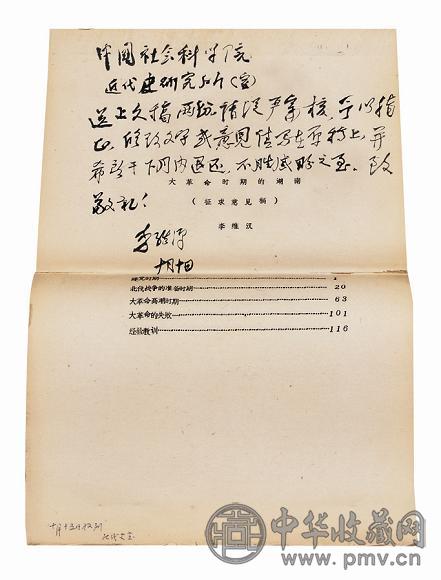 中国社会科学院
近代史研究所(室)
送上文稿两份请从严审核,予以指
正,修改文字或意见请写在原稿上,并
希于下月内退还,不胜感盼之至。致
大革命时期的湖南
敬礼!
(征求意见稿)
李维汉
李维汉
十月十四
建党时期 1
北伐战争的准备时期 20
大革命高潮时期 63
大革命的失败 101
经验教训 116
十月十五日收到
中华收藏网
www.pmv.cn